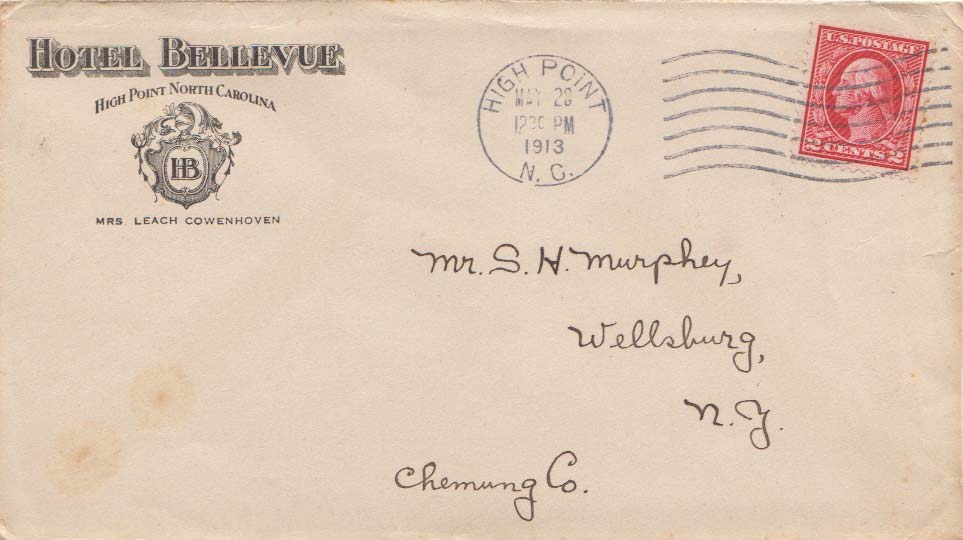 HOTEL BELLEVUE
HIGH POINT NORTH CAROLINA
HB
MRS. LEACH COWENHOVEN
HIGH POINT
MAY 28
1230 PM
1913
N. C.
U.S. POSTAGE
2 CENTS 2
Mr. S. H. Murphey,
Wellsburg,
N. Y.
Chemung Co.